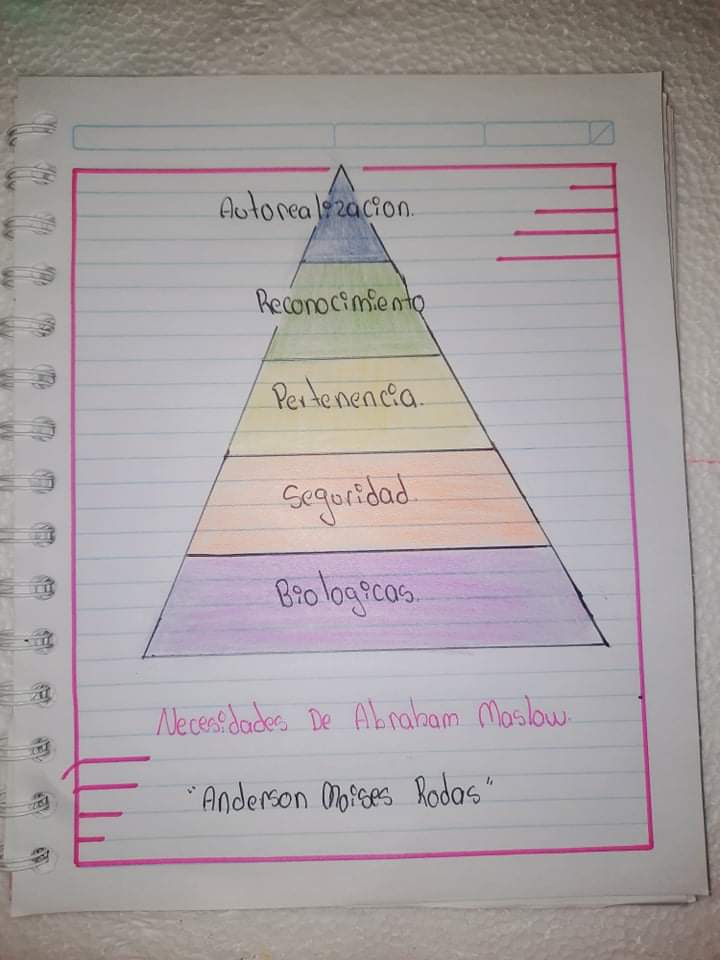 Autorealizacion.
Reconocimiento
Pertenencia.
Seguridad.
Biologicas.
Necesidades De Abraham Maslow.
"Anderson Moises Rodas"